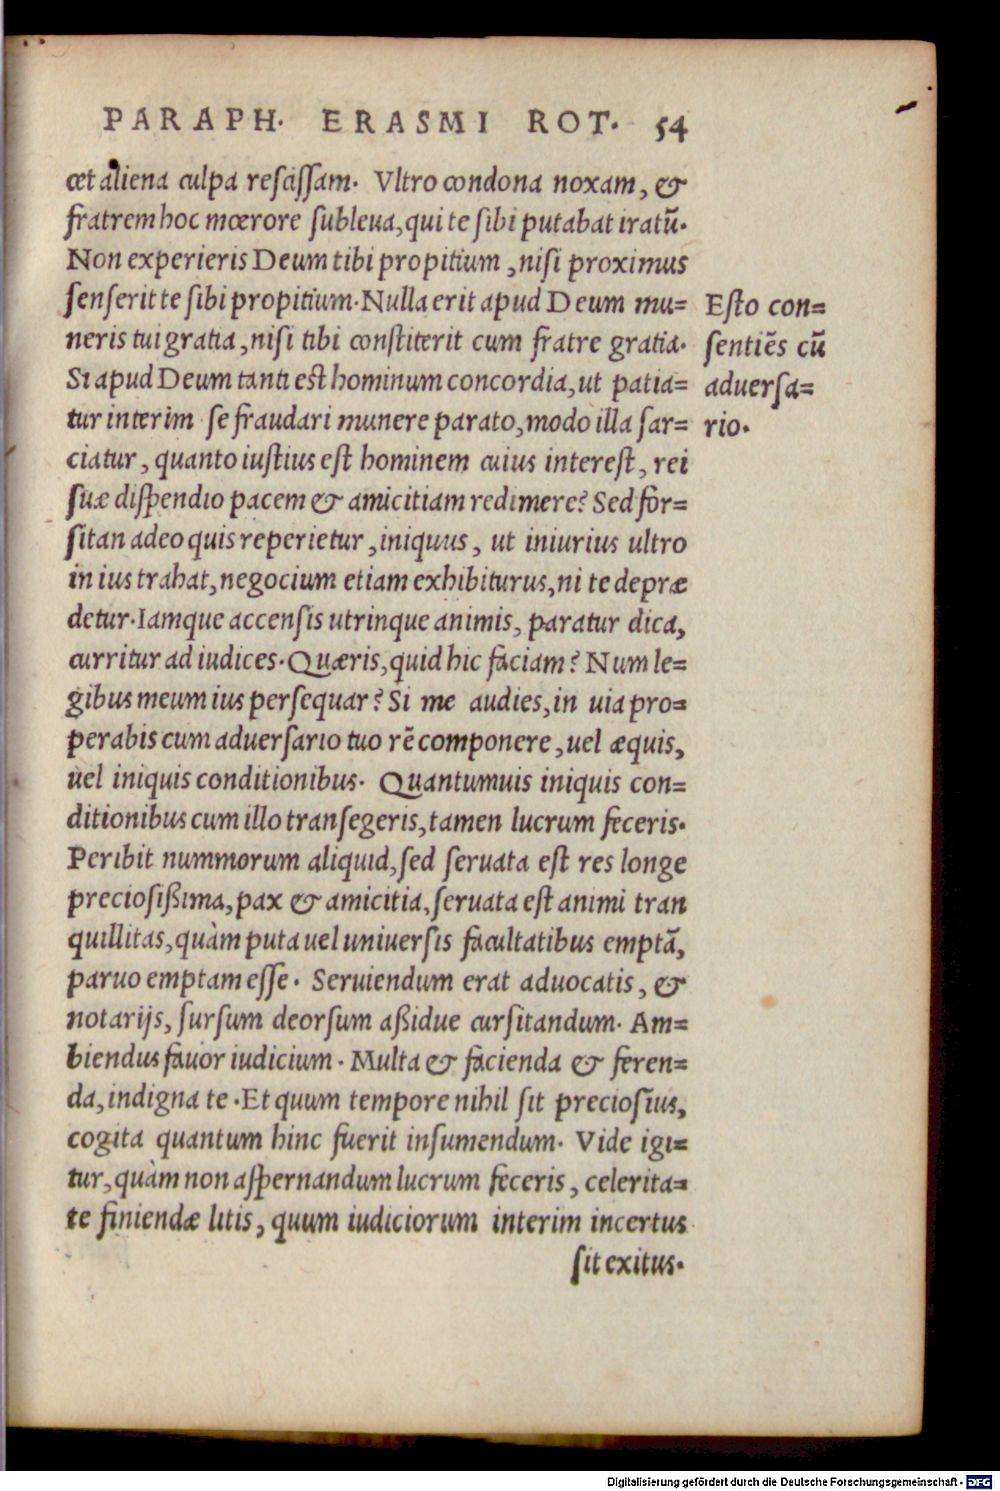 PARAPH. ERASMI ROT. 54
cet aliena culpa rescissam. Vltro condona noxam, &
fratrem hoc mœrore subleua, qui te sibi putabat iratū.
Non experieris Deum tibi propitium, nisi proximus
senserit te sibi propitium. Nulla erit apud Deum mu=
neris tui gratia, nisi tibi constiterit cum fratre gratia.
Si apud Deum tanti est hominum concordia, ut patia=
tur interim se fraudari munere parato, modo illa sar=
ciatur, quanto iustius est hominem cuius interest, rei
suæ dispendio pacem & amicitiam redimere? Sed for=
sitan adeo quis reperietur, iniquus, ut iniurius ultro
in ius trahat, negocium etiam exhibiturus, ni te depræ
detur. Iamque accensis utrinque animis, paratur dica,
curritur ad iudices. Quæris, quid hic faciam? Num le=
gibus meum ius persequar? Si me audies, in uia pro=
perabis cum aduersario tuo rē componere, uel æquis,
uel iniquis conditionibus. Quantumuis iniquis con=
ditionibus cum illo transegeris, tamen lucrum feceris.
Peribit nummorum aliquid, sed seruata est res longe
preciosißima, pax & amicitia, seruata est animi tran
quillitas, quàm puta uel uniuersis facultatibus emptā,
paruo emptam esse. Seruiendum erat aduocatis, &
notarijs, sursum deorsum aßidue cursitandum. Am=
biendus fauor iudicium. Multa & facienda & feren=
da, indigna te. Et quum tempore nihil sit preciosĩus,
cogita quantum hinc fuerit insumendum. Vide igi=
tur, quàm non aspernandum lucrum feceris, celerita=
te finiendæ litis, quum iudiciorum interim incertus
sit exitus.
Esto con=
sentiēs cū
aduersa=
rio.
Digitalisierung gefördert durch die Deutsche Forschungsgemeinschaft - DFG